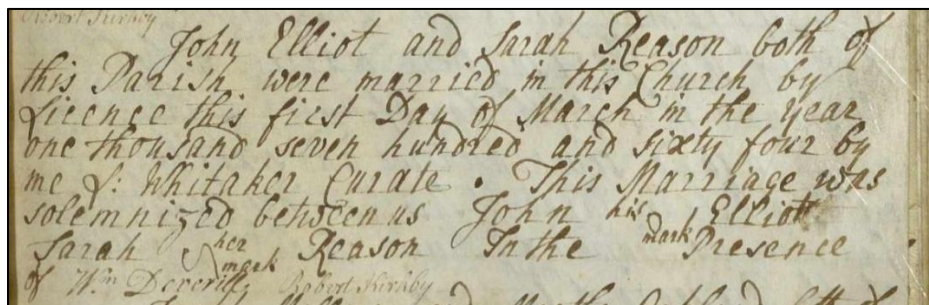 Robert Kirkby
John Elliot and Sarah Reason both of
this Parish were married in this Church by
Licence this first Day of March in the year
one thousand seven hundred and sixty four by
me S: Whitaker Curate . This Marriage was
solemnized between us John his mark Elliott
Sarah her mark Reason In the Presence
of Wm Deverill Robert Kirkby